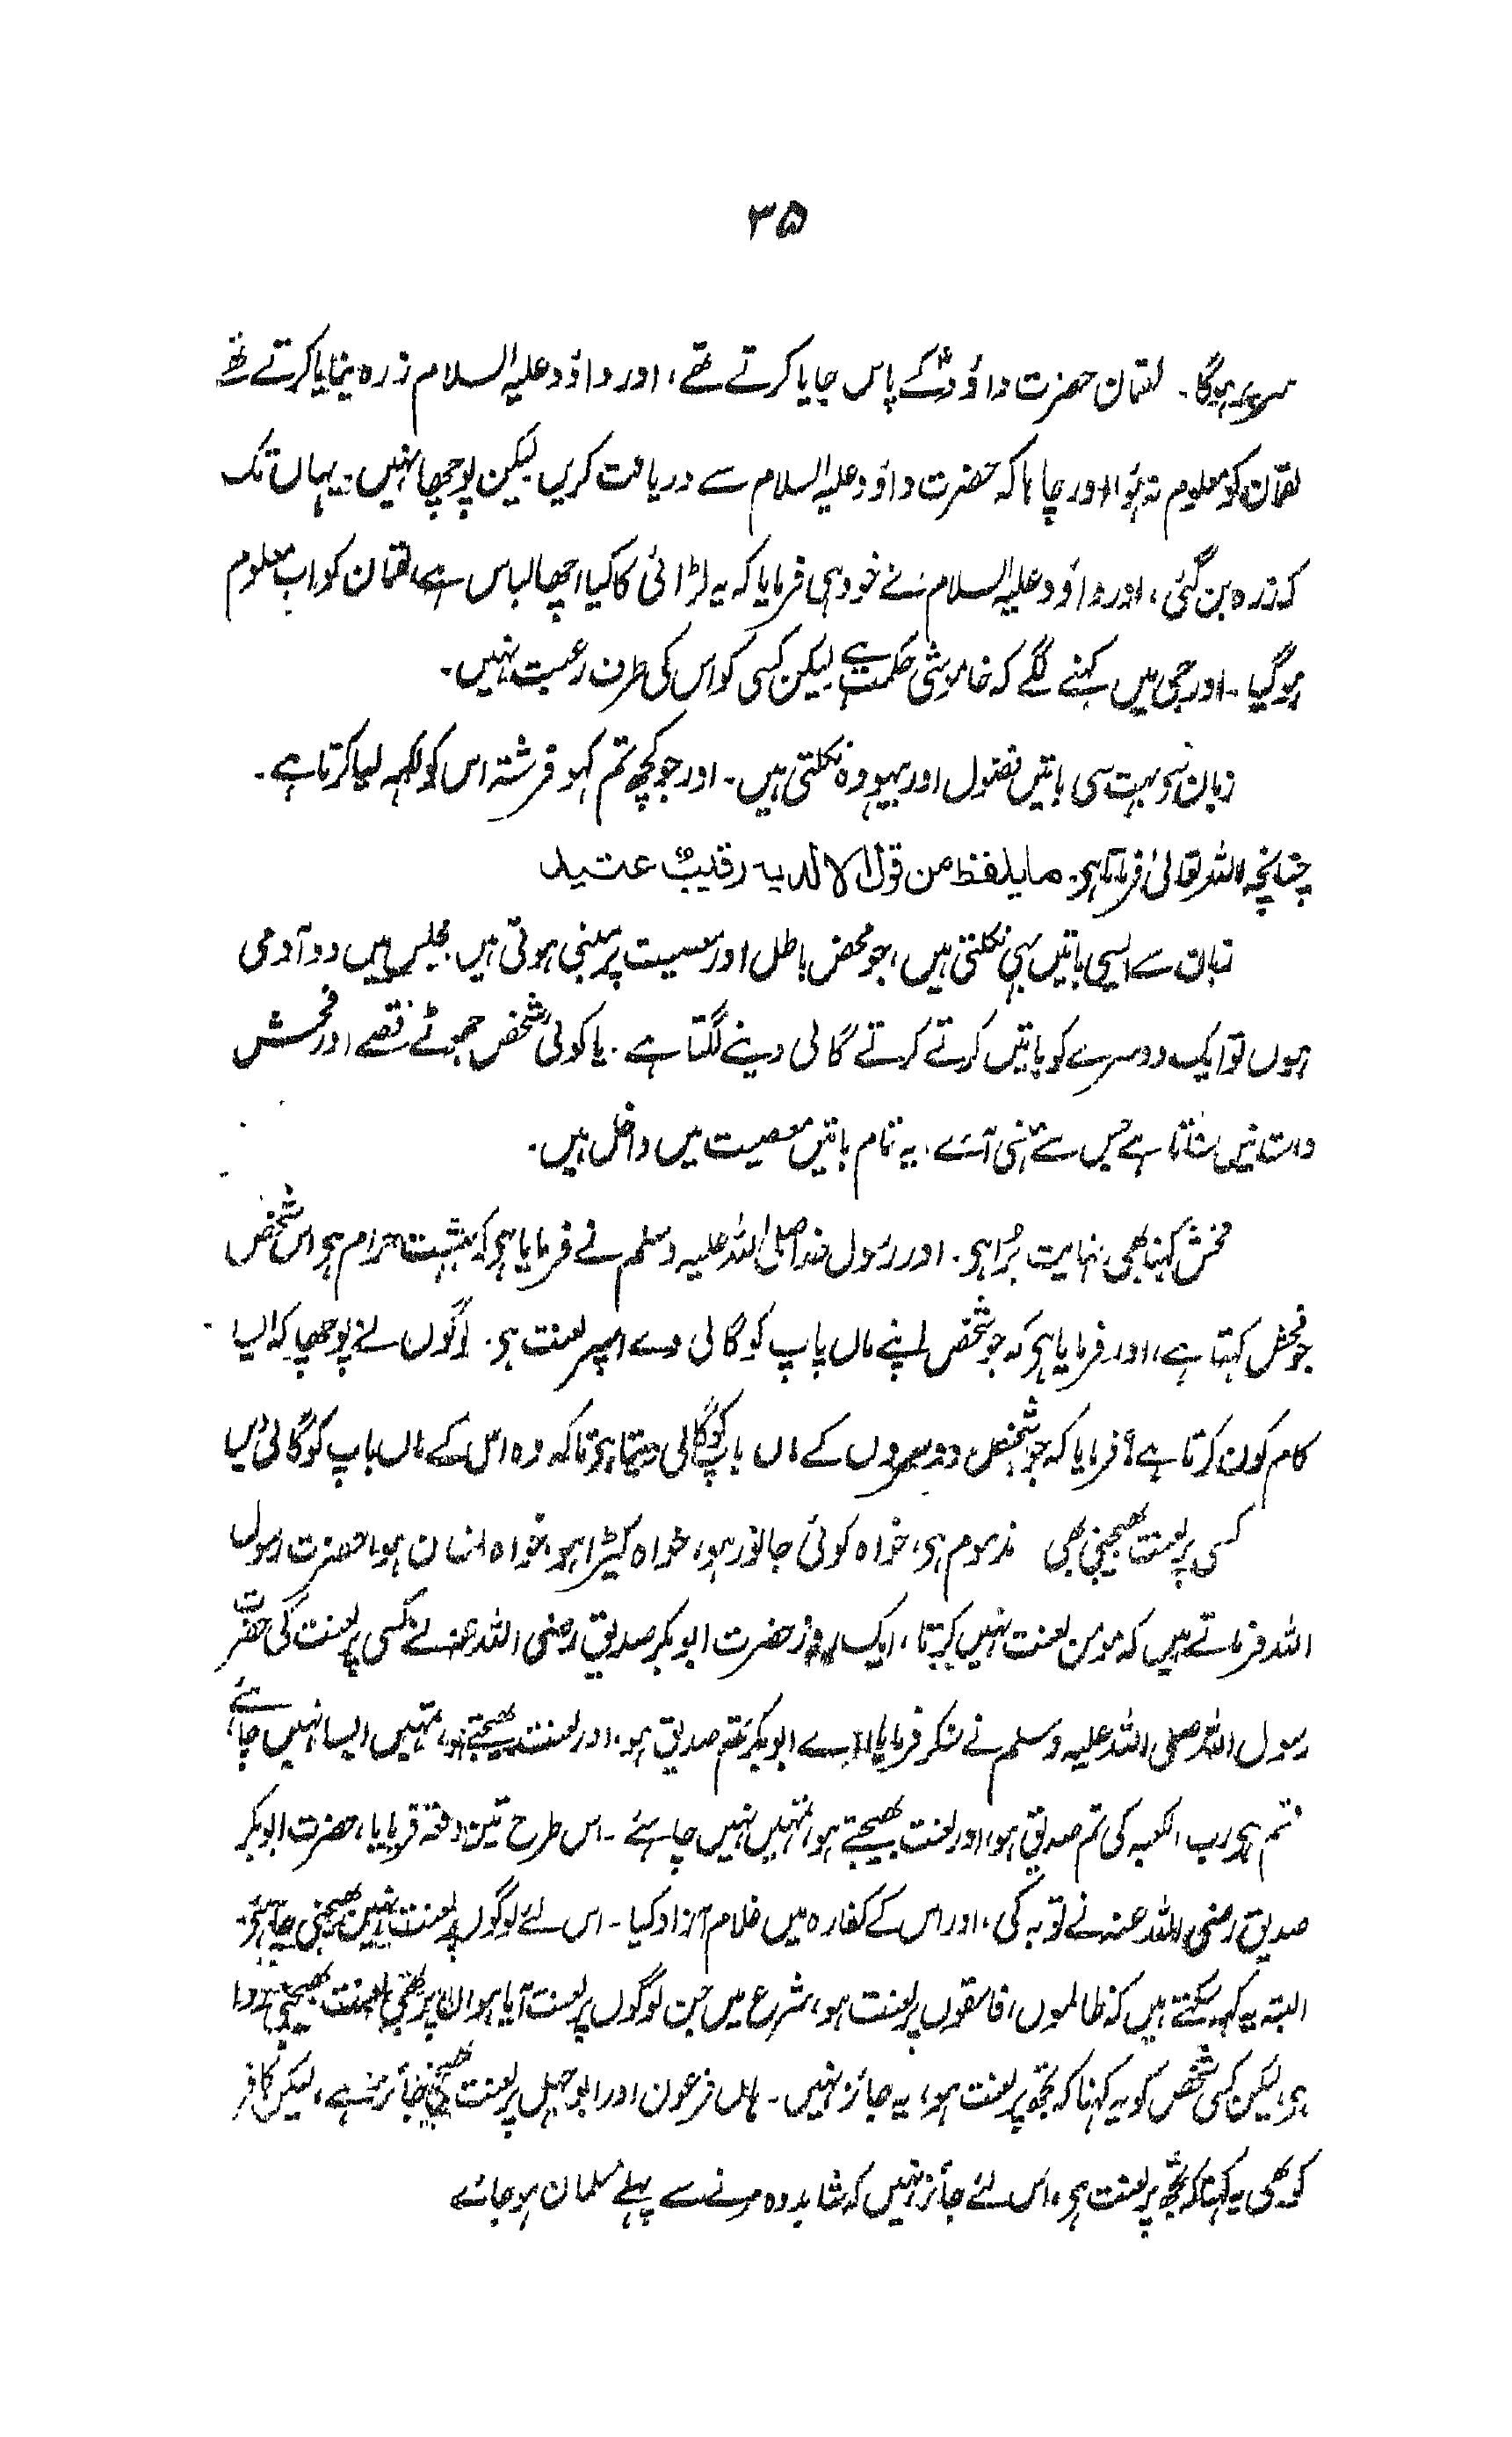 ۳۵
سریر ہوگا۔ لقمان حضرت داؤدؑ کے پاس جایا کرتے تھے، اور داؤد علیہ السلام زرہ بنایا کرتے تھے
لقمان کو معلوم نہ ہؤا اور چاہا کہ حضرت داؤد علیہ السلام سے دریافت کریں لیکن پوچھا نہیں۔ یہاں تک
کہ زرہ بن گئی، اور داؤد علیہ السلام نے خود ہی فرمایا کہ یہ لڑائی کا کیا اچھا لباس ہے، لقمان کو اب معلوم
ہو گیا۔ اور جی میں کہنے لگے کہ خاموشی حکمت ہے لیکن کسی کو اس کی طرف رغبت نہیں۔
زبان سے بہت سی باتیں فضول اور بیہودہ نکلتی ہیں۔ اور جو کچھ تم کہو فرشتہ اس کو لکھ لیا کرتا ہے۔
چنانچہ اللہ تعالیٰ فرماتا ہی۔ ما یلفظ من قول الا لدیہ رقیبٌ عتید
زبان سے ایسی باتیں بھی نکلتی ہیں، جو محض باطل اور معصیت پر مبنی ہوتی ہیں۔ مجلس میں دو آدمی
ہوں تو ایک دوسرے کو باتیں کرتے کرتے گالی دینے لگتا ہے۔ یا کوئی شخص جھوٹے قصے اور فحش
داستانیں سناتا ہے جس سے ہنسی آئے، یہ تمام باتیں معصیت میں داخل ہیں۔
فحش کہنا بھی نہایت بُرا ہی۔ اور رسول خدا صلی اللہ علیہ وسلم نے فرمایا ہی کہ بہشت حرام ہی اس شخص
جو فحش کہتا ہے، اور فرمایا ہی کہ جو شخص اپنے ماں باپ کو گالی دے اسپر لعنت ہی۔ لوگوں نے پوچھا کہ ایسا
کام کون کرتا ہے؟ فرمایا کہ جو شخص دوسروں کے ماں باپ کو گالی دیتا ہی تاکہ وہ اس کے ماں باپ کو گالی دیں
کسی پر لعنت بھیجنی بھی مذموم ہی، خواہ کوئی جانور ہو، خواہ کیڑا ہو، خواہ انسان ہو، حضرت رسول
اللہ فرماتے ہیں کہ مومن لعنت نہیں کرتا، ایک روز حضرت ابوبکر صدیق رضی اللہ عنہ نے کسی پر لعنت کی حضرت
رسول اللہ صلی اللہ علیہ وسلم نے سنکر فرمایا اے ابوبکر تم صدیق ہو، اور لعنت بھیجتے ہو، تمہیں ایسا نہیں چاہئے
قسم ہی رب الکعبہ کی تم صدیق ہو، اور لعنت بھیجتے ہو، تمہیں نہیں چاہئے۔ اس طرح تین دفعہ فرمایا، حضرت ابوبکر
صدیق رضی اللہ عنہ نے توبہ کی، اور اس کے کفارہ میں غلام آزاد کیا۔ اس لئے لوگوں پر لعنت نہیں بھیجنی چاہئے۔
البتہ یہ کہہ سکتے ہیں کہ ظالموں، فاسقوں پر لعنت ہو، شرع میں جن لوگوں پر لعنت آیا ہو ان پر بھی لعنت بھیجنی روا
ہی، لیکن کسی شخص کو یہ کہنا کہ تجھ پر لعنت ہو، یہ جائز نہیں۔ ہاں فرعون اور ابوجہل پر لعنت بھیجنی جائز ہے، لیکن کافر
کو بھی یہ کہنا کہ تجھ پر لعنت ہی، اس لئے جائز نہیں کہ شاید وہ مرنے سے پہلے مسلمان ہو جائے